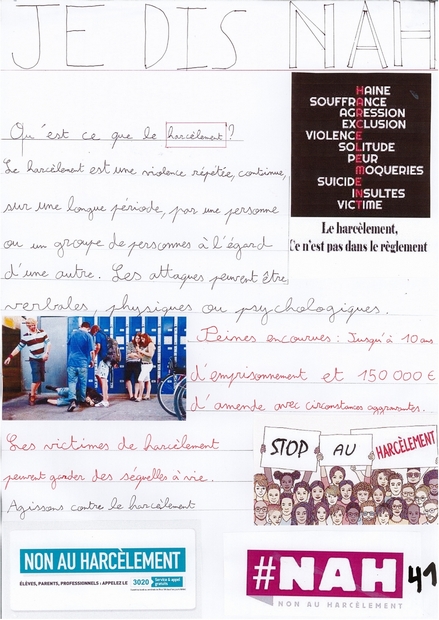 JE DIS NAH
Qu'est ce que le harcèlement ?
Le harcèlement est une violence répétée, continue,
sur une longue période, par une personne
ou un groupe de personnes à l'égard
d'une autre. Les attaques peuvent être
verbales, physiques ou psychologiques.
HAINE
SOUFFRANCE
AGRESSION
EXCLUSION
VIOLENCE
SOLITUDE
PEUR
MOQUERIES
SUICIDE
INSULTES
VICTIME
Le harcèlement,
Ce n'est pas dans le règlement
Peines encourues : Jusqu'à 10 ans
d'emprisonnement et 150 000 €
d'amende avec circonstances aggravantes.
Les victimes de harcèlement
peuvent garder des séquelles à vie.
Agissons contre le harcèlement
STOP AU HARCÈLEMENT
NON AU HARCÈLEMENT
ÉLÈVES, PARENTS, PROFESSIONNELS : APPELEZ LE 3020 Service & appel gratuits
#NAH 41
NON AU HARCÈLEMENT